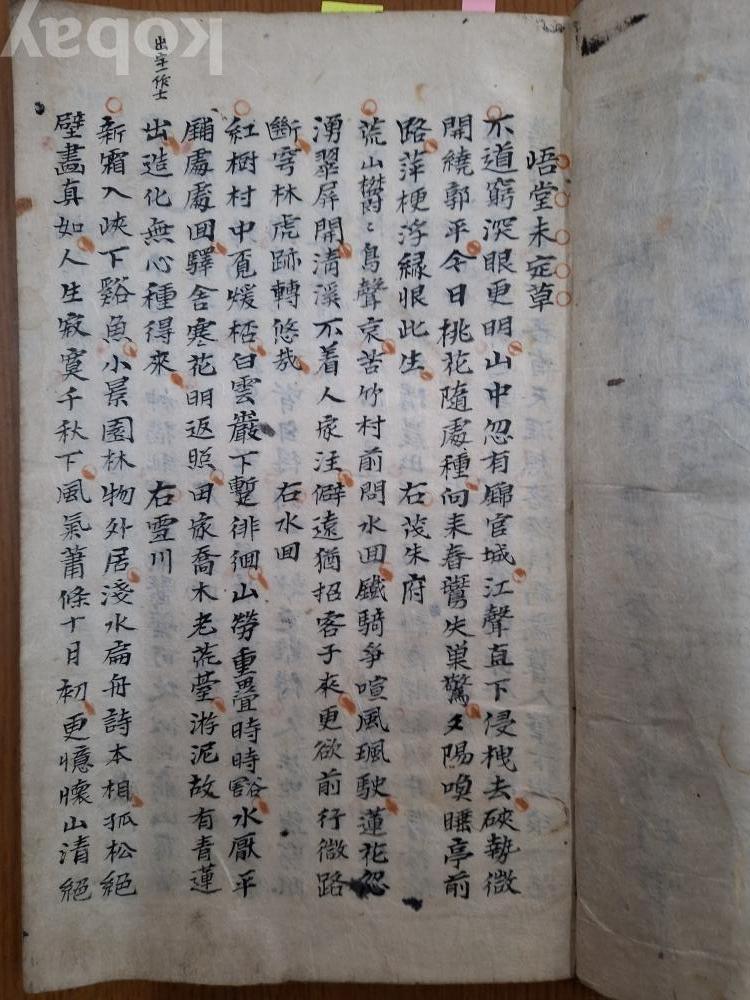 悟堂未定草
不道窮深眼更明山中忽有縣官城江聲直下侵栧去硤勢微
開繞郭平今日桃花隨處種何來春鸎失巢驚夕陽喚睡亭前
路萍梗浮緣恨此生 右茂朱府
荒山欝〻鳥聲哀苦竹村前問水回鐵騎爭喧風颿駛蓮花忽
湧翠屛開淸溪不着人家注僻遠猶招客子來更欲前行微路
斷穹林虎跡轉悠哉 右水回
紅樹村中覓煖桮白雲巖下蹔徘徊山勞重疊時時豁水厭平
鋪處處回驛舍寒花明返照田家喬木老荒臺游泥故有青蓮
出造化無心種得來 右雪川
新霜入峽下谿魚小景園林物外居淺水扁舟詩本相孤松絕
壁畵眞如人生寂寞千秋下風氣蕭條十月初更憶懷山清絕
出字一作士
Kobay